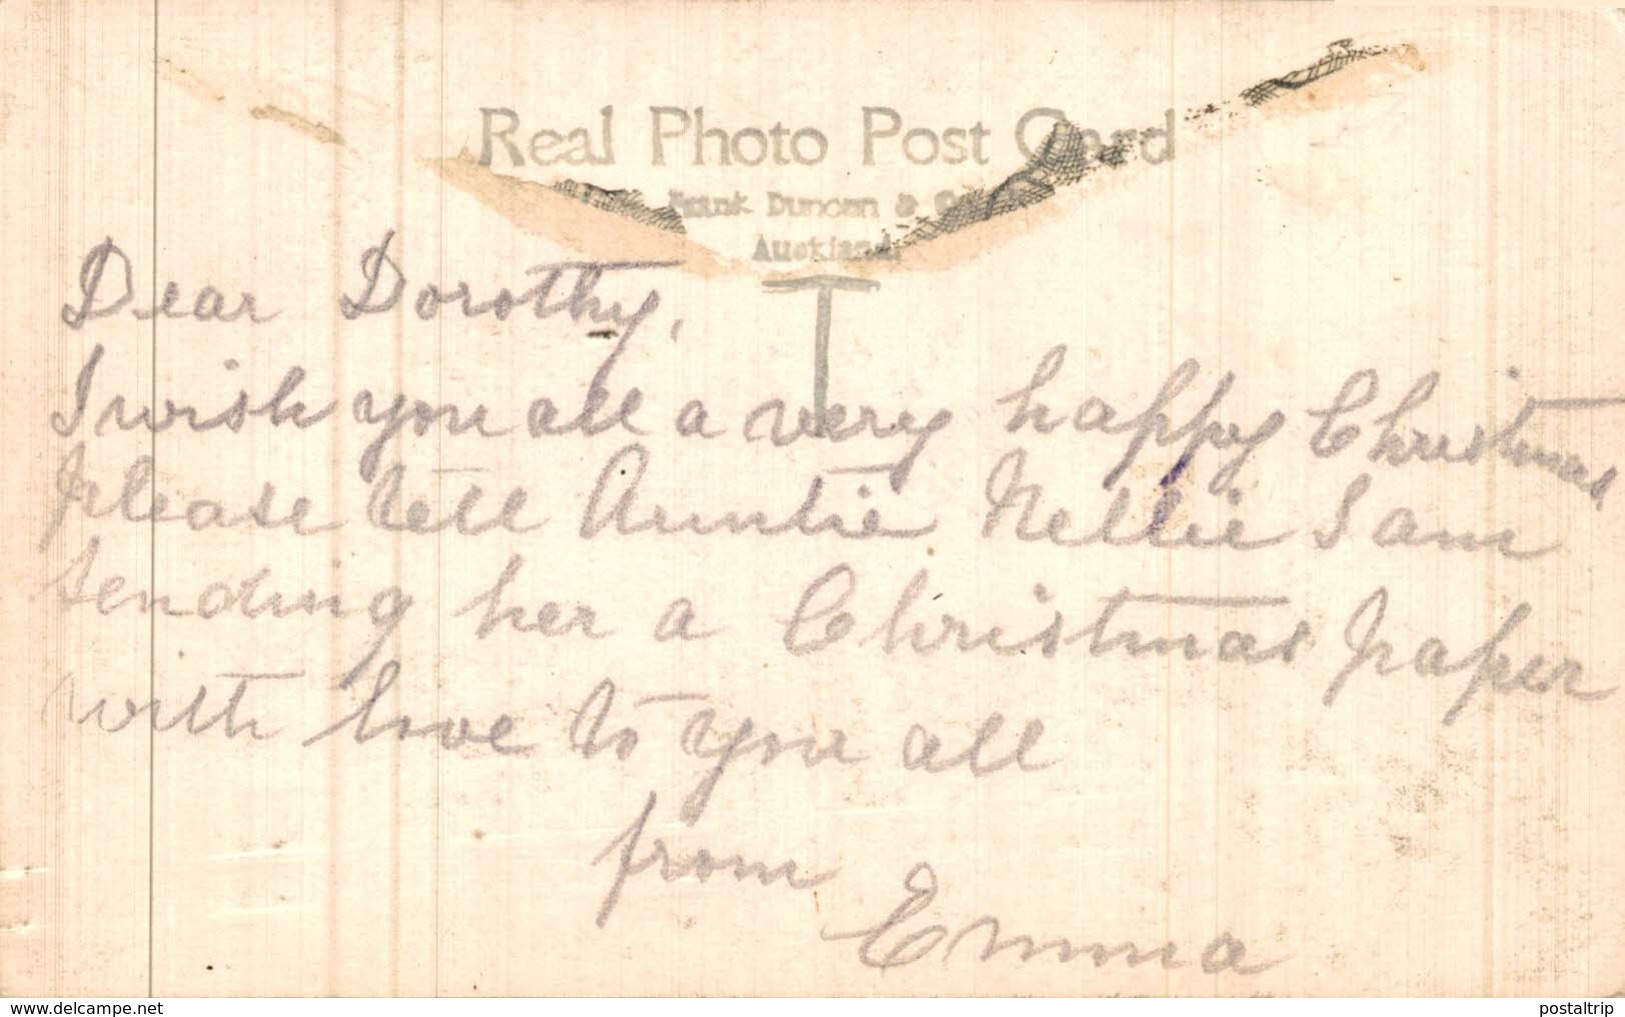 Real Photo Post Card
Frank Duncan & Co.
Auckland.
Dear Dorothy,
I wish you all a very happy Christmas
please tell Auntie Nellie I am
sending her a Christmas paper
with love to you all
from
Emma
www.delcampe.net
postaltrip